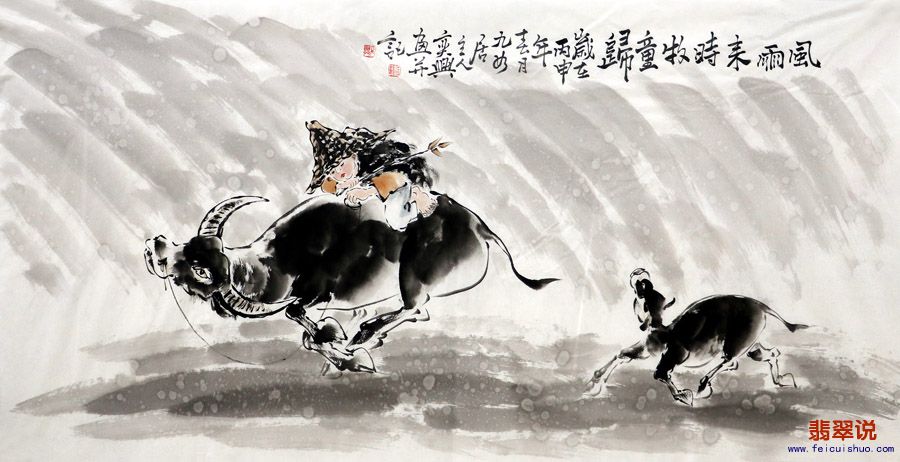 風雨来時牧童歸
歲在丙申年
月九如居主人
興画并記
翡翠说
www.feicuishuo.com